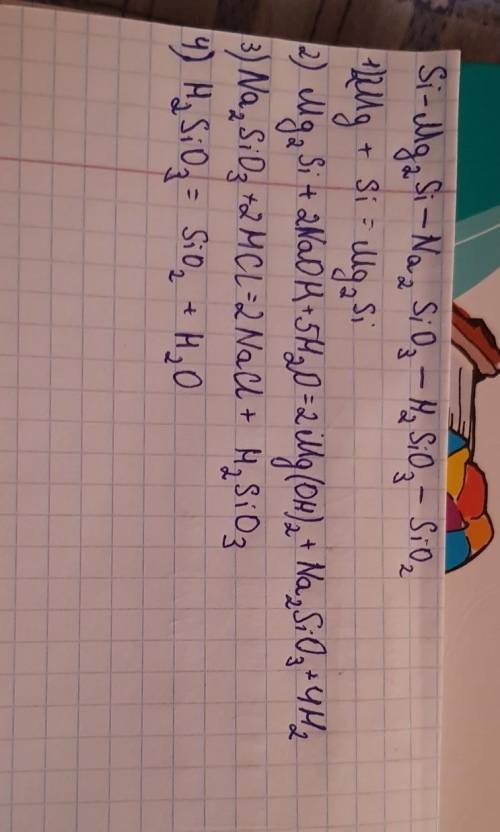 Si - Mg₂Si - Na₂SiO₃ - H₂SiO₃ - SiO₂
1) 2Mg + Si = Mg₂Si
2) Mg₂Si + 2NaOH + 5H₂O = 2Mg(OH)₂ + Na₂SiO₃ + 4H₂
3) Na₂SiO₃ + 2HCl = 2NaCl + H₂SiO₃
4) H₂SiO₃ = SiO₂ + H₂O